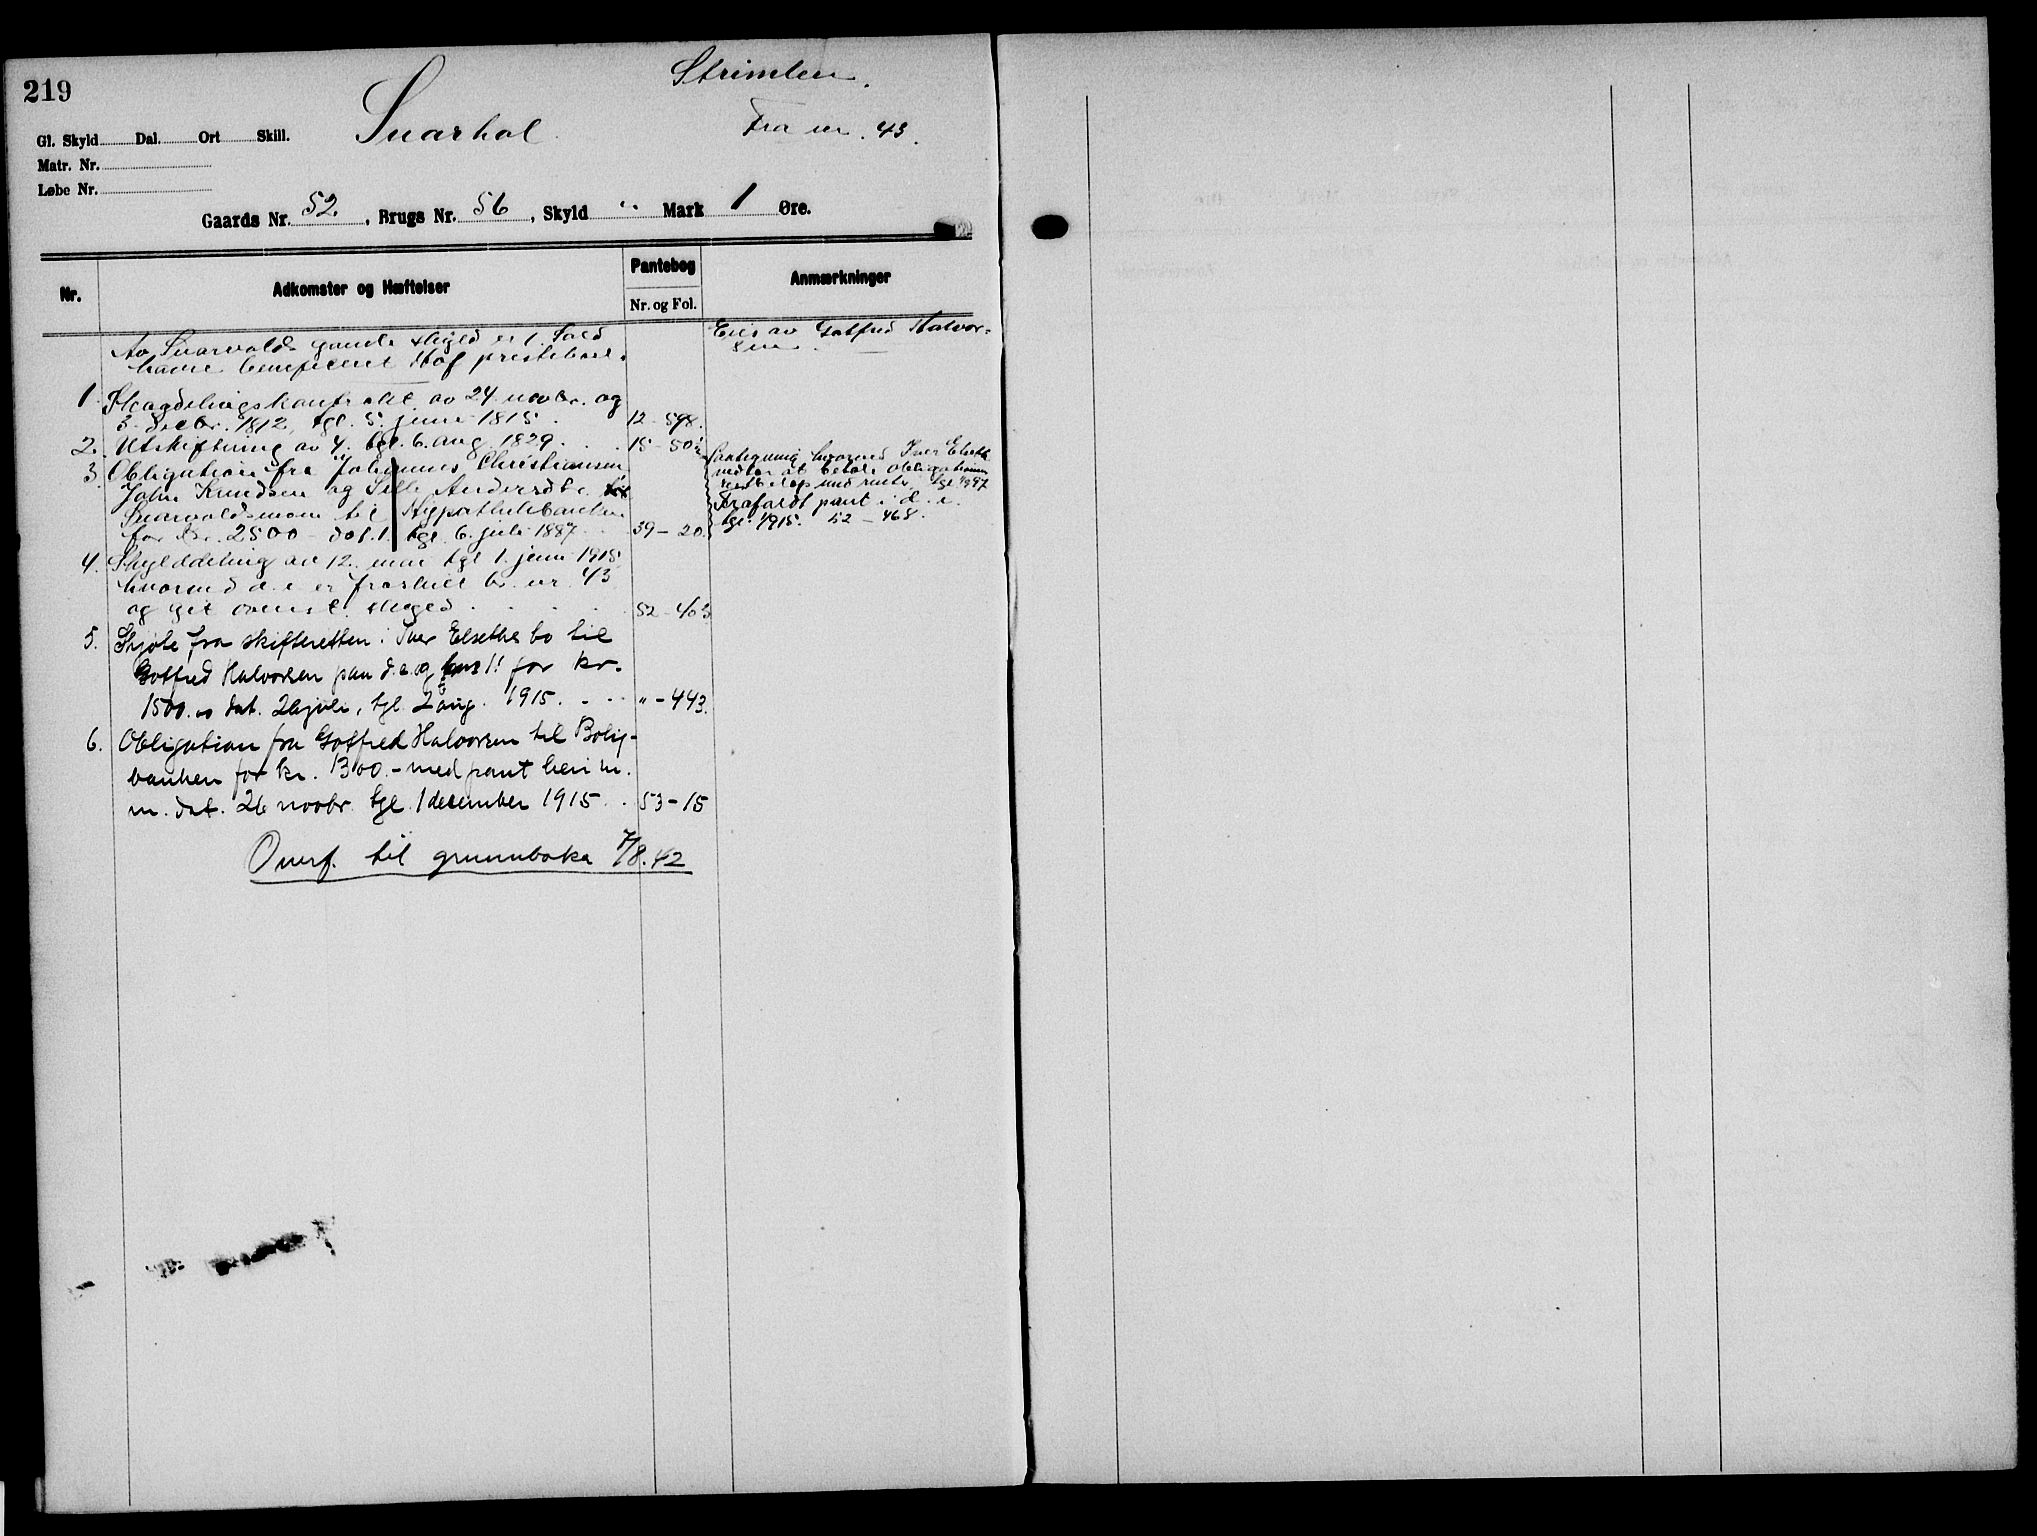 219
Strimlen.
Snarhol
Fra nr. 43.
Gl. Skyld Dal. Ort Skill.
Matr. Nr.
Løbe Nr.
Gaards Nr. 52, Brugs Nr. 56, Skyld " Mark 1 Øre.
Nr.
Adkomster og Hæftelser
Pantebog
Nr. og Fol.
Anmærkninger
Av Snarvolds gamle skyld er 1 Sold
havre beneficeret Hof prestebord.
Eies av Gotfred Halvor-
sen.
1. Skogdelingskontrakt av 24 novbr. og
3. decbr. 1812, tgl. 5. juni 1815. 12-598.
2. Utskiftning av tgl. 6. aug. 1829. 15-50
3. Obligation fra Johannes Christiansen
John Knudsen og Sille Andersdtr.
Snarvoldsmoen til Hypothekbanken
for kr. 2500 - dat. 1. tgl. 6. juli 1887. 39-20.
Iver Elseth
at betale obligationens
restbeløp med rente, tgl.
Frafaldt pant i d. e.
tgl. 1915. 52-468.
4. Skylddeling av 12. mai tgl 1. juni 1915,
hvorved d. e. er fraskilt br. nr. 43
og git ovenst. skyld. 52-403
5. Skjøte fra skifteretten i Iver Elseths bo til
Gotfred Halvorsen paa d. e. og for kr.
1500.00 dat. 26 juli, tgl. 2 aug. 1915. "-443.
6. Obligation fra Gotfred Halvorsen til Bolig-
banken for kr. 1300.- med pant heri m.
m. dat. 26 novbr. tgl. 1 desember 1915. 53-15
Overf. til grunnboka 7/8.42